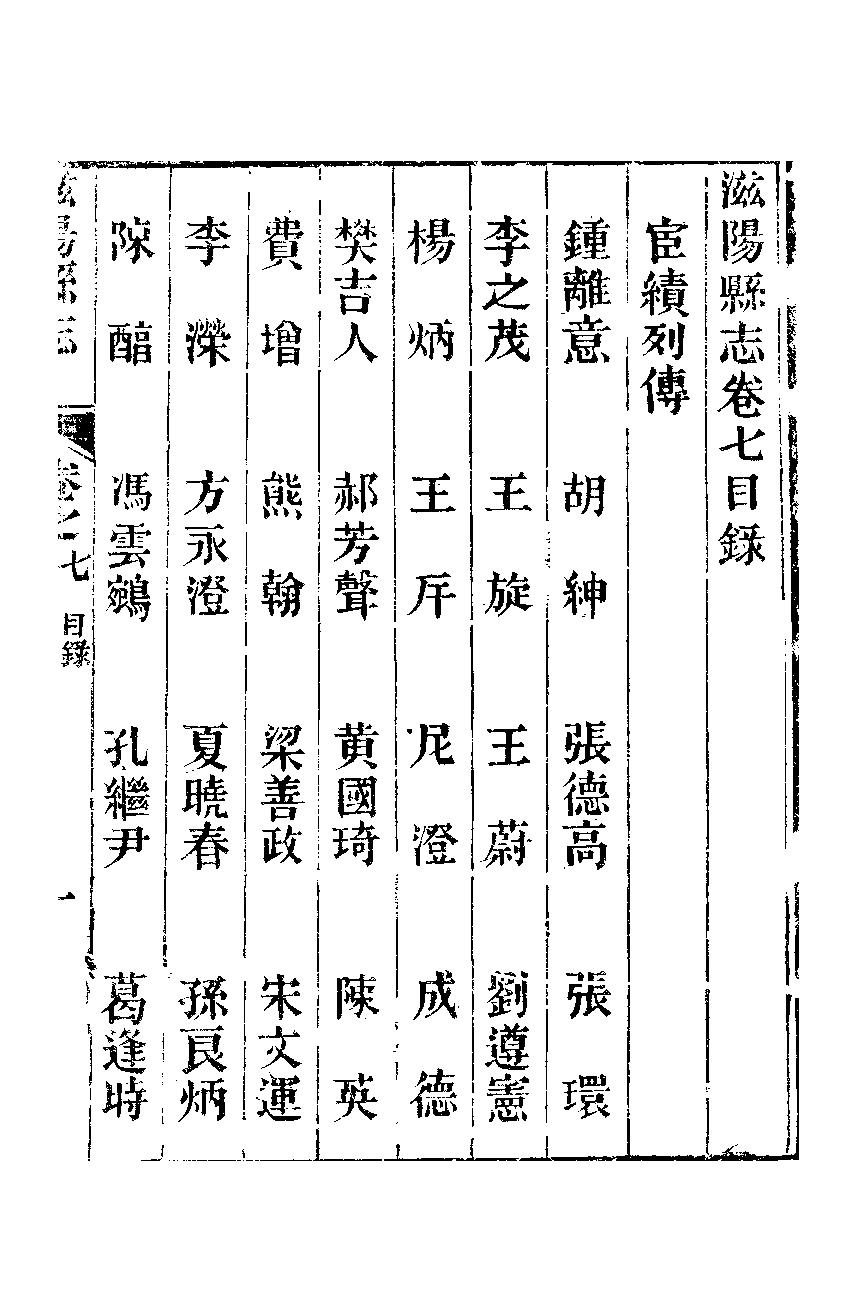 滋陽縣志卷七目錄
宦績列傳
鍾離意 胡紳 張德高 張環
李之茂 王旋 王蔚 劉遵憲
楊炳 王斥 凡澄 成德
樊吉人 郝芳聲 黄國琦 陳英
費增 熊翰 梁善政 宋文運
李濚 方永澄 夏曉春 孫良炳
陳醕 馮雲鵷 孔繼尹 葛逢時
滋陽縣志 卷之七 目錄 一